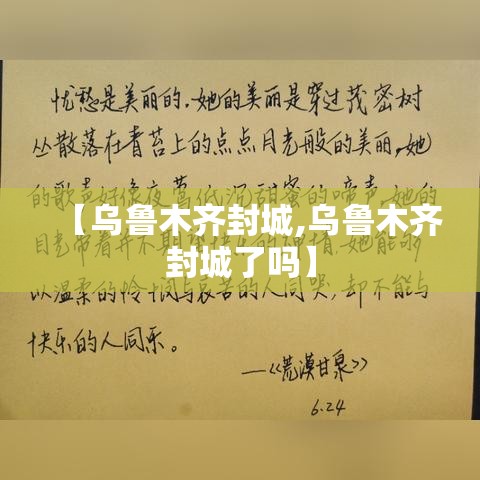 忧愁是美丽的.她的美丽是穿过茂密树
丛散落在青苔上的点点月光般的美丽,她
的歌声好像夜莺低沉甜蜜的啼声,她的
【乌鲁木齐封城,乌鲁木齐
封城了吗】
目光带着并不期
她能够
以温柔的怜悯与哀苦的人同哭,却不能与
快乐的人同乐。
—《荒漠甘泉》
6.24